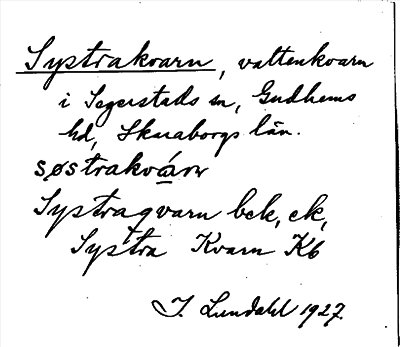 Systrakvarn, vattenkvarn
i Segerstads sn, Gudhems
hd, Skaraborgs län.
søstrakvárn
Systraqvarn bck, ek,
Systra Kvarn Kb
I. Lundahl 1927.